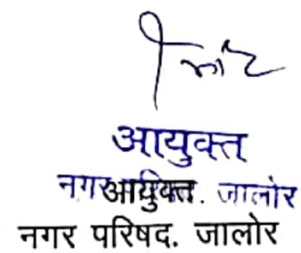 आयुक्त
नगर आयुक्त. जालोर
नगर परिषद. जालोर